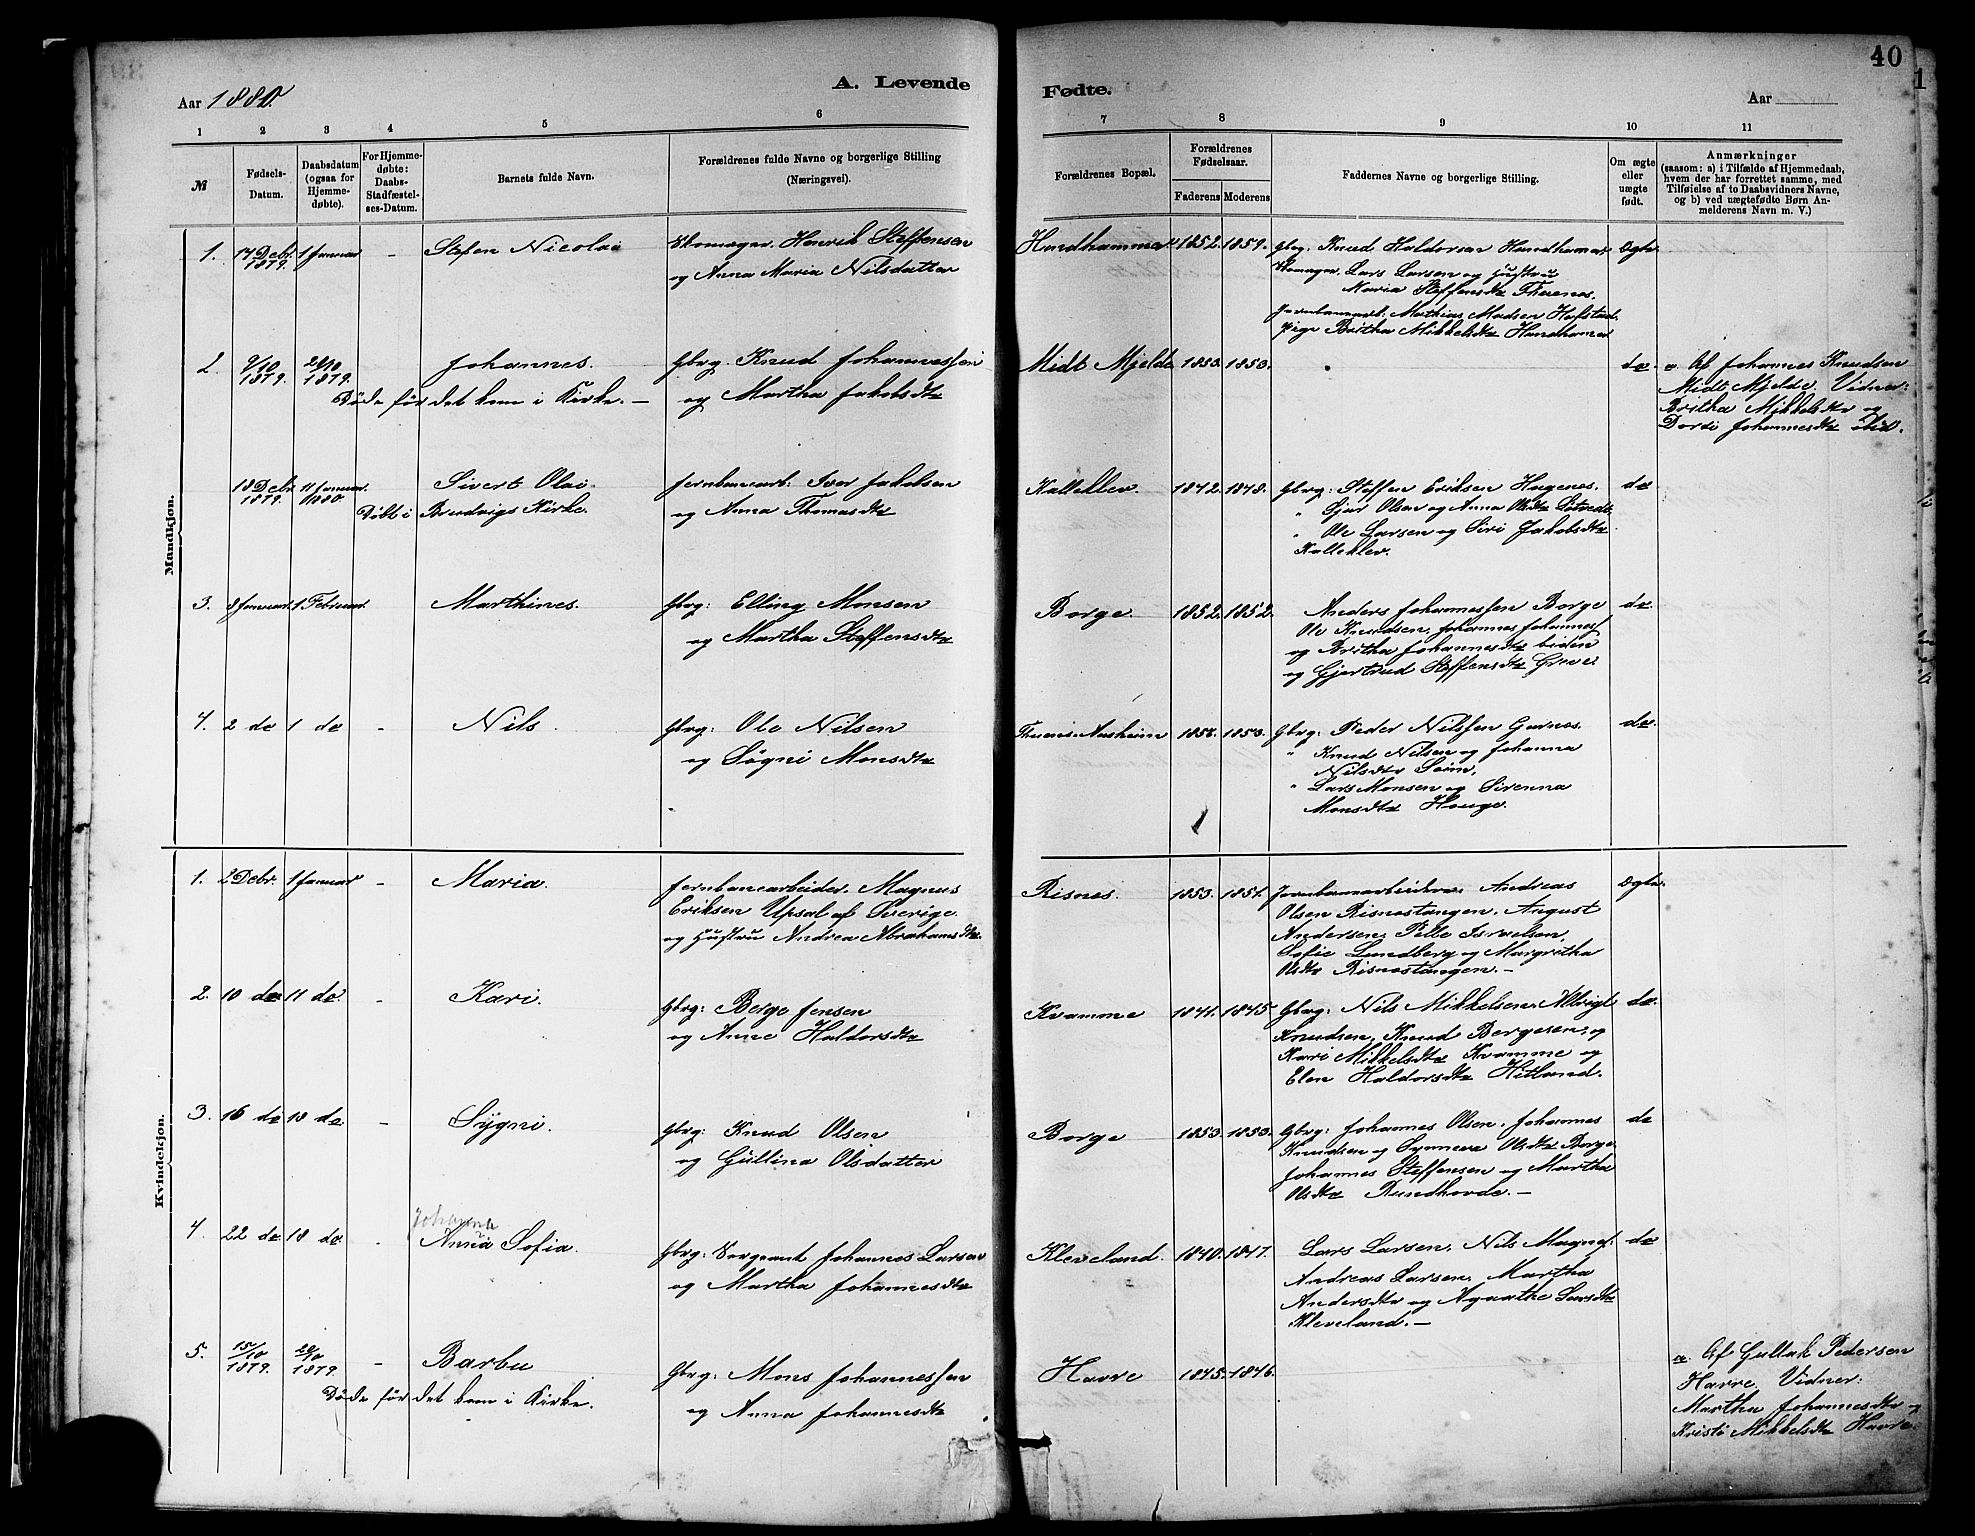 40
1
A. Levende
Fødte.
Aar 1880.
Aar
1 2 3 4 5 6
7 8 9 10 11
№
Fødsels-
Datum.
Daabsdatum
(ogsaa for
Hjemme-
døbte).
For Hjemme-
døbte:
Daabs-
Stadfæstel-
ses-Datum.
Barnets fulde Navn.
Forældrenes fulde Navne og borgerlige Stilling
(Næringsvei).
Forældrenes Bopæl.
Forældrenes
Fødselsaar.
Faderens Moderens
Faddernes Navne og borgerlige Stilling.
Om ægte
eller
uægte
født.
Anmærkninger
(saasom: a) i Tilfælde af Hjemmedaab,
hvem der har forrettet samme, med
Tilføielse af to Daabsvidners Navne,
og b) ved uægtefødte Børn An-
melderens Navn m. V.)
Mandkjøn.
1. 14 Debr. 1879. 1 Januar - Stefen Nicolai
Skomager. Henrik Steffensen
og Anna Maria Nilsdatter
Hundhammer 1852. 1857.
Gbrg: Knud Haldorsen Hundhamer
Skomager. Lars Larsen og Hustru
Maria Steffensdtr Thuenes.
Jernbanearb. Mathias Madsen Hofstad
Pige Britha Mikkelsdtr Hundhamer
Ægte.
2. 9/10 1879. 26/10 1879. Johannes.
Døde før det kom i Kirke. —
Gbrg: Knud Johannessen
og Martha Jakobsdtr
Midt Mjelde 1853. 1853. do.
a. Af Johannes Knudsen
Midt Mjelde. Vidner:
Britha Mikkelsdtr og
Dordi Johannesdtr ibid.
18 Debr 1879. 11 Januar. 1880 Sivert Olai.
Døbt i Bruvigs Kirke.
Jernbanearb: Iver Jakobsen
og Anna Thomasdtr
Kalleklev. 1842. 1848.
Gbrg: Steffen Eriksen Hagenes.
" Sjur Olsen og Anna Olsdtr
" Ole Larsen og Siri Jakobsdtr
Kalleklev.
do
3. 8 Januar. 1 Februar. Marthines.
Gbrg: Elling Monsen
og Martha Steffensdtr
Borge. 1852. 1852.
Anders Johannessen Borge
Ole Knudsen, Johannes Johannes/
og Britha Johannesdtr biden
og Gjertrud Steffensdtr
do
4. 2 do 1 do - Nils.
Gbrg: Ole Nilsen
og Søgni Monsdtr
1853.
Gbrg: Peder Nilssen Garnes.
" Knud Nilsen og Johanna
Nilsdtr Seim,
" Lars Monsen og Sirenna
Monsdtr Houge.
do.
Kvindekjøn.
1. 2 Debr. 1 Januar - Maria.
Jernbanearbeider. Magnus
Eriksen Upsal af Sverige
og Hustru Andrea Abrahamsdtr.
Risnes. 1853. 1854.
Jernbanearbeidere. Andreas
Olsen Risnestangen. August
Andersen, Pelle Israelsen,
Sofie Lundberg og Margretha
Olsdtr Risnestangen. —
Ægte.
2. 10 do 11 do. - Kari.
Gbrg: Berge Jensen
og Anne Haldorsdtr
Kvamme 1841. 1845.
Gbrg: Nils Mikkelsen, Albrigt
Knudsen, Knud Bergesen, og
Kari Mikkelsdtr Kvamme og
Elen Haldorsdtr Hitland.
do.
3. 16 do 18 do. - Sygni.
Gbrg: Knud Olsen
og Gullina Olsdatter
Borge 1853. 1853.
Gbrg: Johannes Olsen. Johannes
Knudsen og Synneva Olsdtr Borge
Johannes Steffensen og Martha
Olsdtr Rundhovde. —
do
Johanna
4. 22 do 18 do. - Anna Sofia.
Gbrg: Sergeant Johannes Larsen
og Martha Johannesdtr
Kleveland. 1840. 1847.
Lars Larsen, Nils Magnef:
Andreas Larsen, Martha
Andersdtr og Agaathe Larsdtr
Kleveland. —
do
5. 15/10 1879. 26/10 1879. - Barbu
Døde før det kom i Kirke.
Gbrg: Mons Johannessen
og Anna Johannesdtr
Havre 1845. 1846.
a. Af Gullak Pedersen
Havre. Vidner:
Martha Johannesdtr og
Kristi Mikkelsdtr Havre.